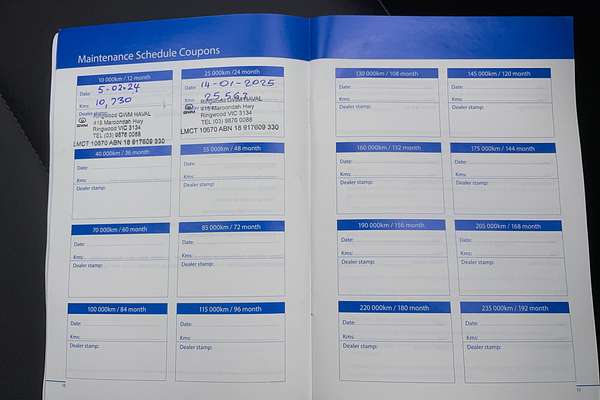 Maintenance Schedule Coupons
10 000km / 12 month
Date: 5-02-24
Kms: 10,730
Dealer stamp:
GWM
Ringwood GWM HAVAL
Maroondah Hwy
Ringwood VIC 3134
TEL (03) 9876 0088
LMCT 10570 ABN 18 917609 330
25 000km /24 month
Date: 14-01-2025
Kms: 25,567
GWM HAVAL
Maroondah Hwy
Ringwood VIC 3134
TEL (03) 9876 0088
LMCT 10570 ABN 18 917609 330
40 000km / 36 month
Date:
Kms:
Dealer stamp:
55 000km / 48 month
Date:
Kms:
Dealer stamp:
70 000km / 60 month
Date:
Kms:
Dealer stamp:
85 000km / 72 month
Date:
Kms:
Dealer stamp:
100 000km / 84 month
Date:
Kms:
Dealer stamp:
115 000km / 96 month
Date:
Kms:
Dealer stamp:
130 000km / 108 month
Date:
Kms:
Dealer stamp:
145 000km / 120 month
Date:
Kms:
Dealer stamp:
160 000km / 132 month
Date:
Kms:
Dealer stamp:
175 000km / 144 month
Date:
Kms:
Dealer stamp:
190 000km / 156 month
Date:
Kms:
Dealer stamp:
205 000km / 168 month
Date:
Kms:
Dealer stamp:
220 000km / 180 month
Date:
Kms:
Dealer stamp:
235 000km / 192 month
Date:
Kms:
Dealer stamp: